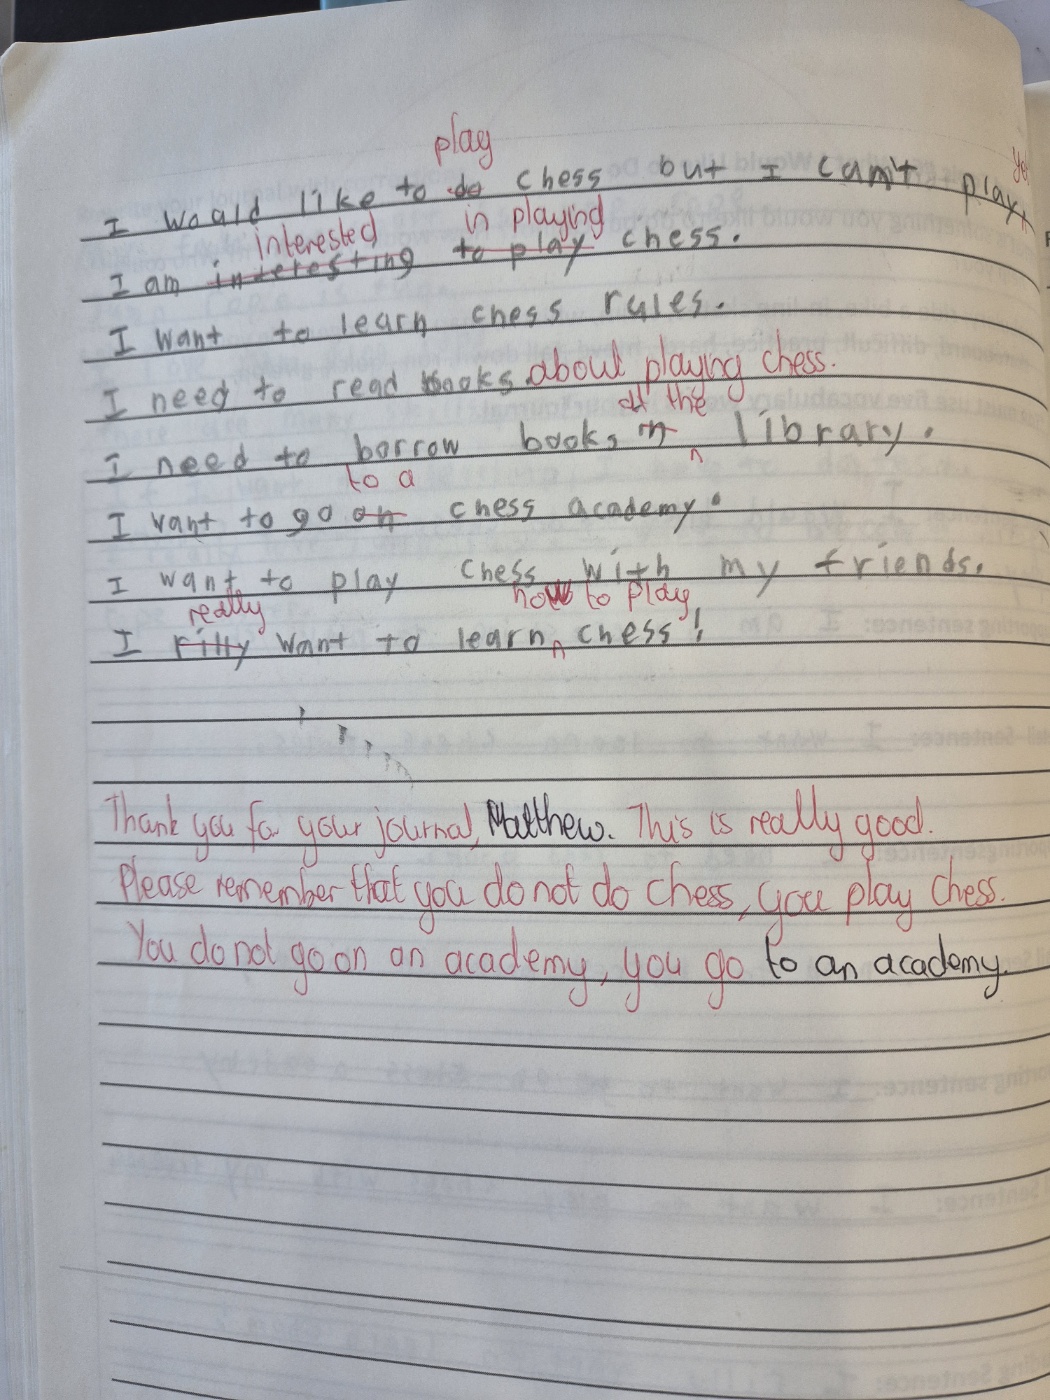 play
I would like to do chess but I can't play yet
interested in playing
I am interesting to play chess.
I want to learn chess rules.
I need to read books about playing chess.
at the
I need to borrow books in library.
to a
I want to go on chess academy.
I want to play chess with my friends.
really how to play
I rilly want to learn chess!
Thank you for your journal, Matthew. This is really good.
Please remember that you do not do chess, you play chess.
You do not go on an academy, you go to an academy.